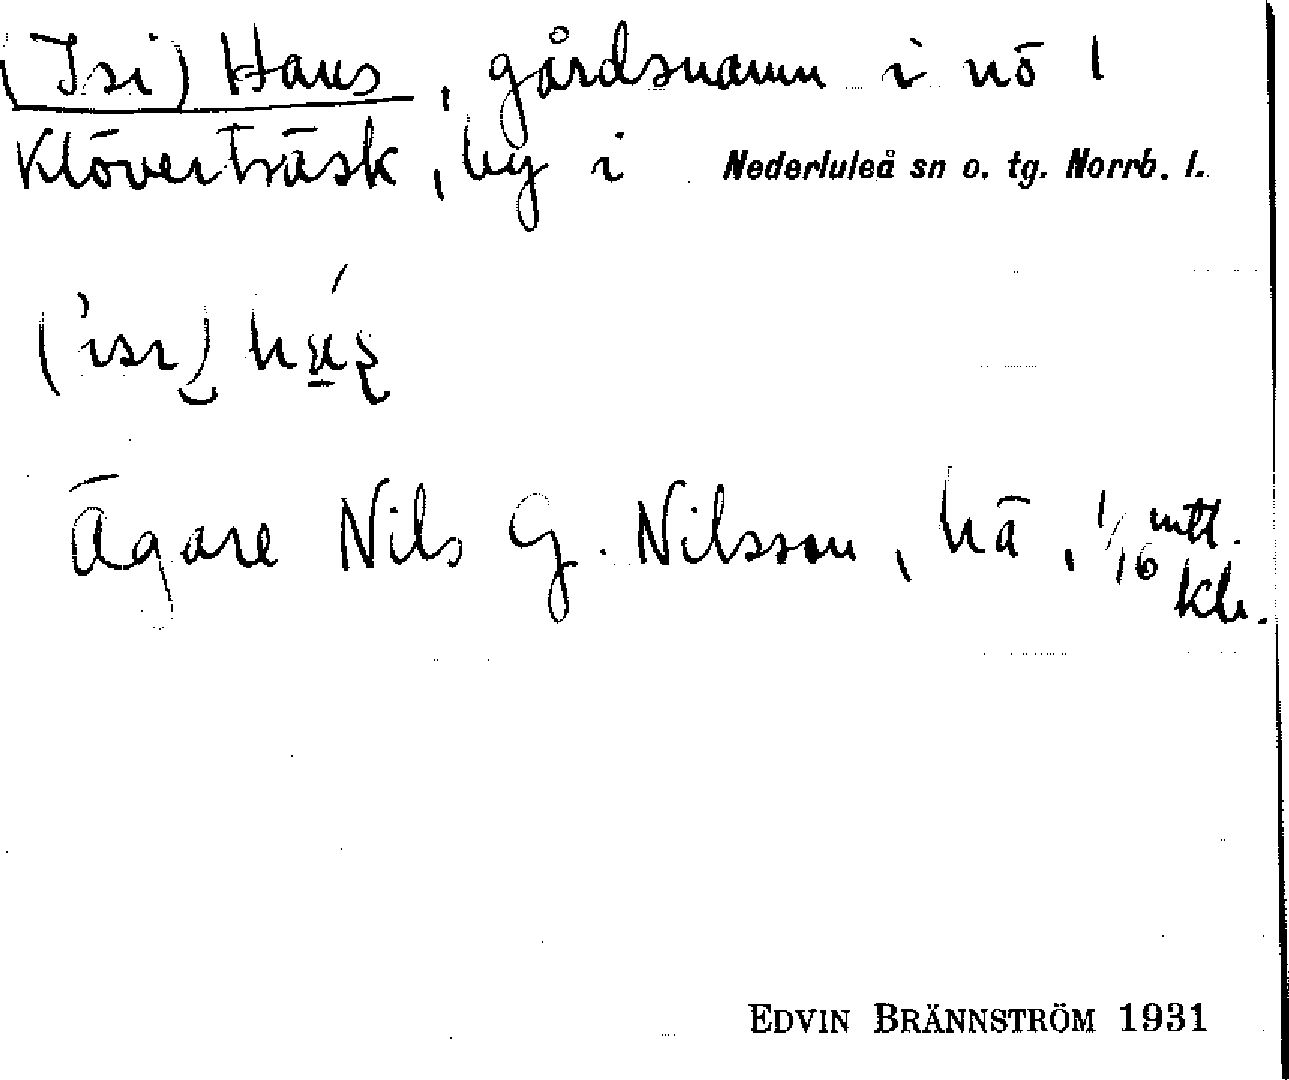 (Isi) Hans, gårdsnamn i nö 1
Klöverträsk, by i Nederluleå sn o. tg. Norrb. l.
Ägare Nils G. Nilsson, hä, 1/16 mtl.
kr.
EDVIN BRÄNNSTRÖM 1931